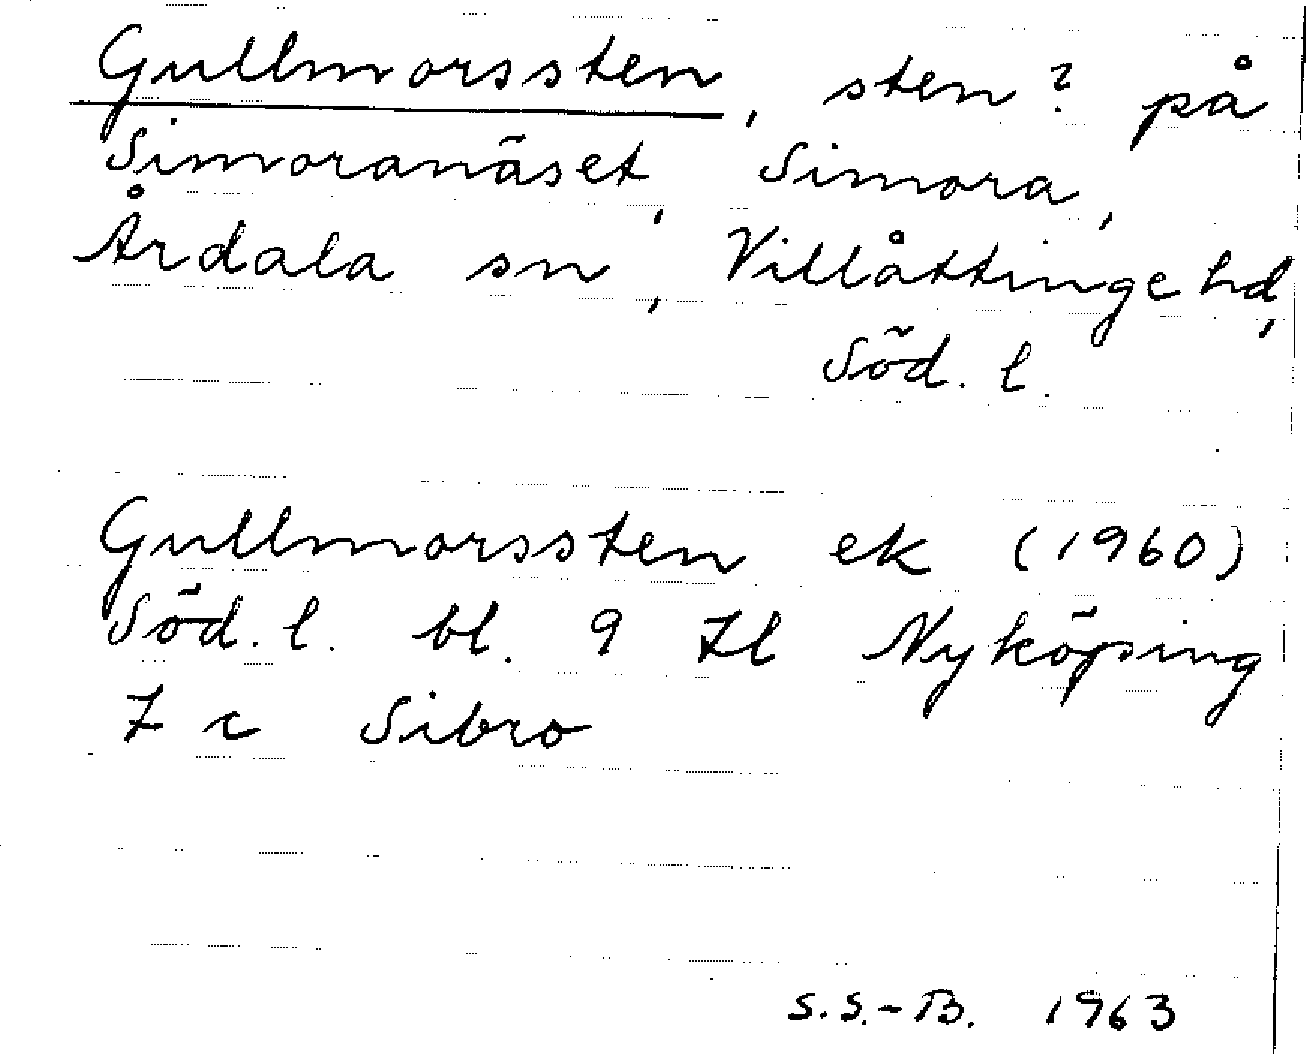 Gullmorssten, sten? på
Simoranäset, Simora,
Årdala sn, Villåttinge hd,
Söd. l.
Gullmorssten ek (1960)
Söd. l. bl. 9 H Nyköping
7 c Sibro
S.S.-B. 1963